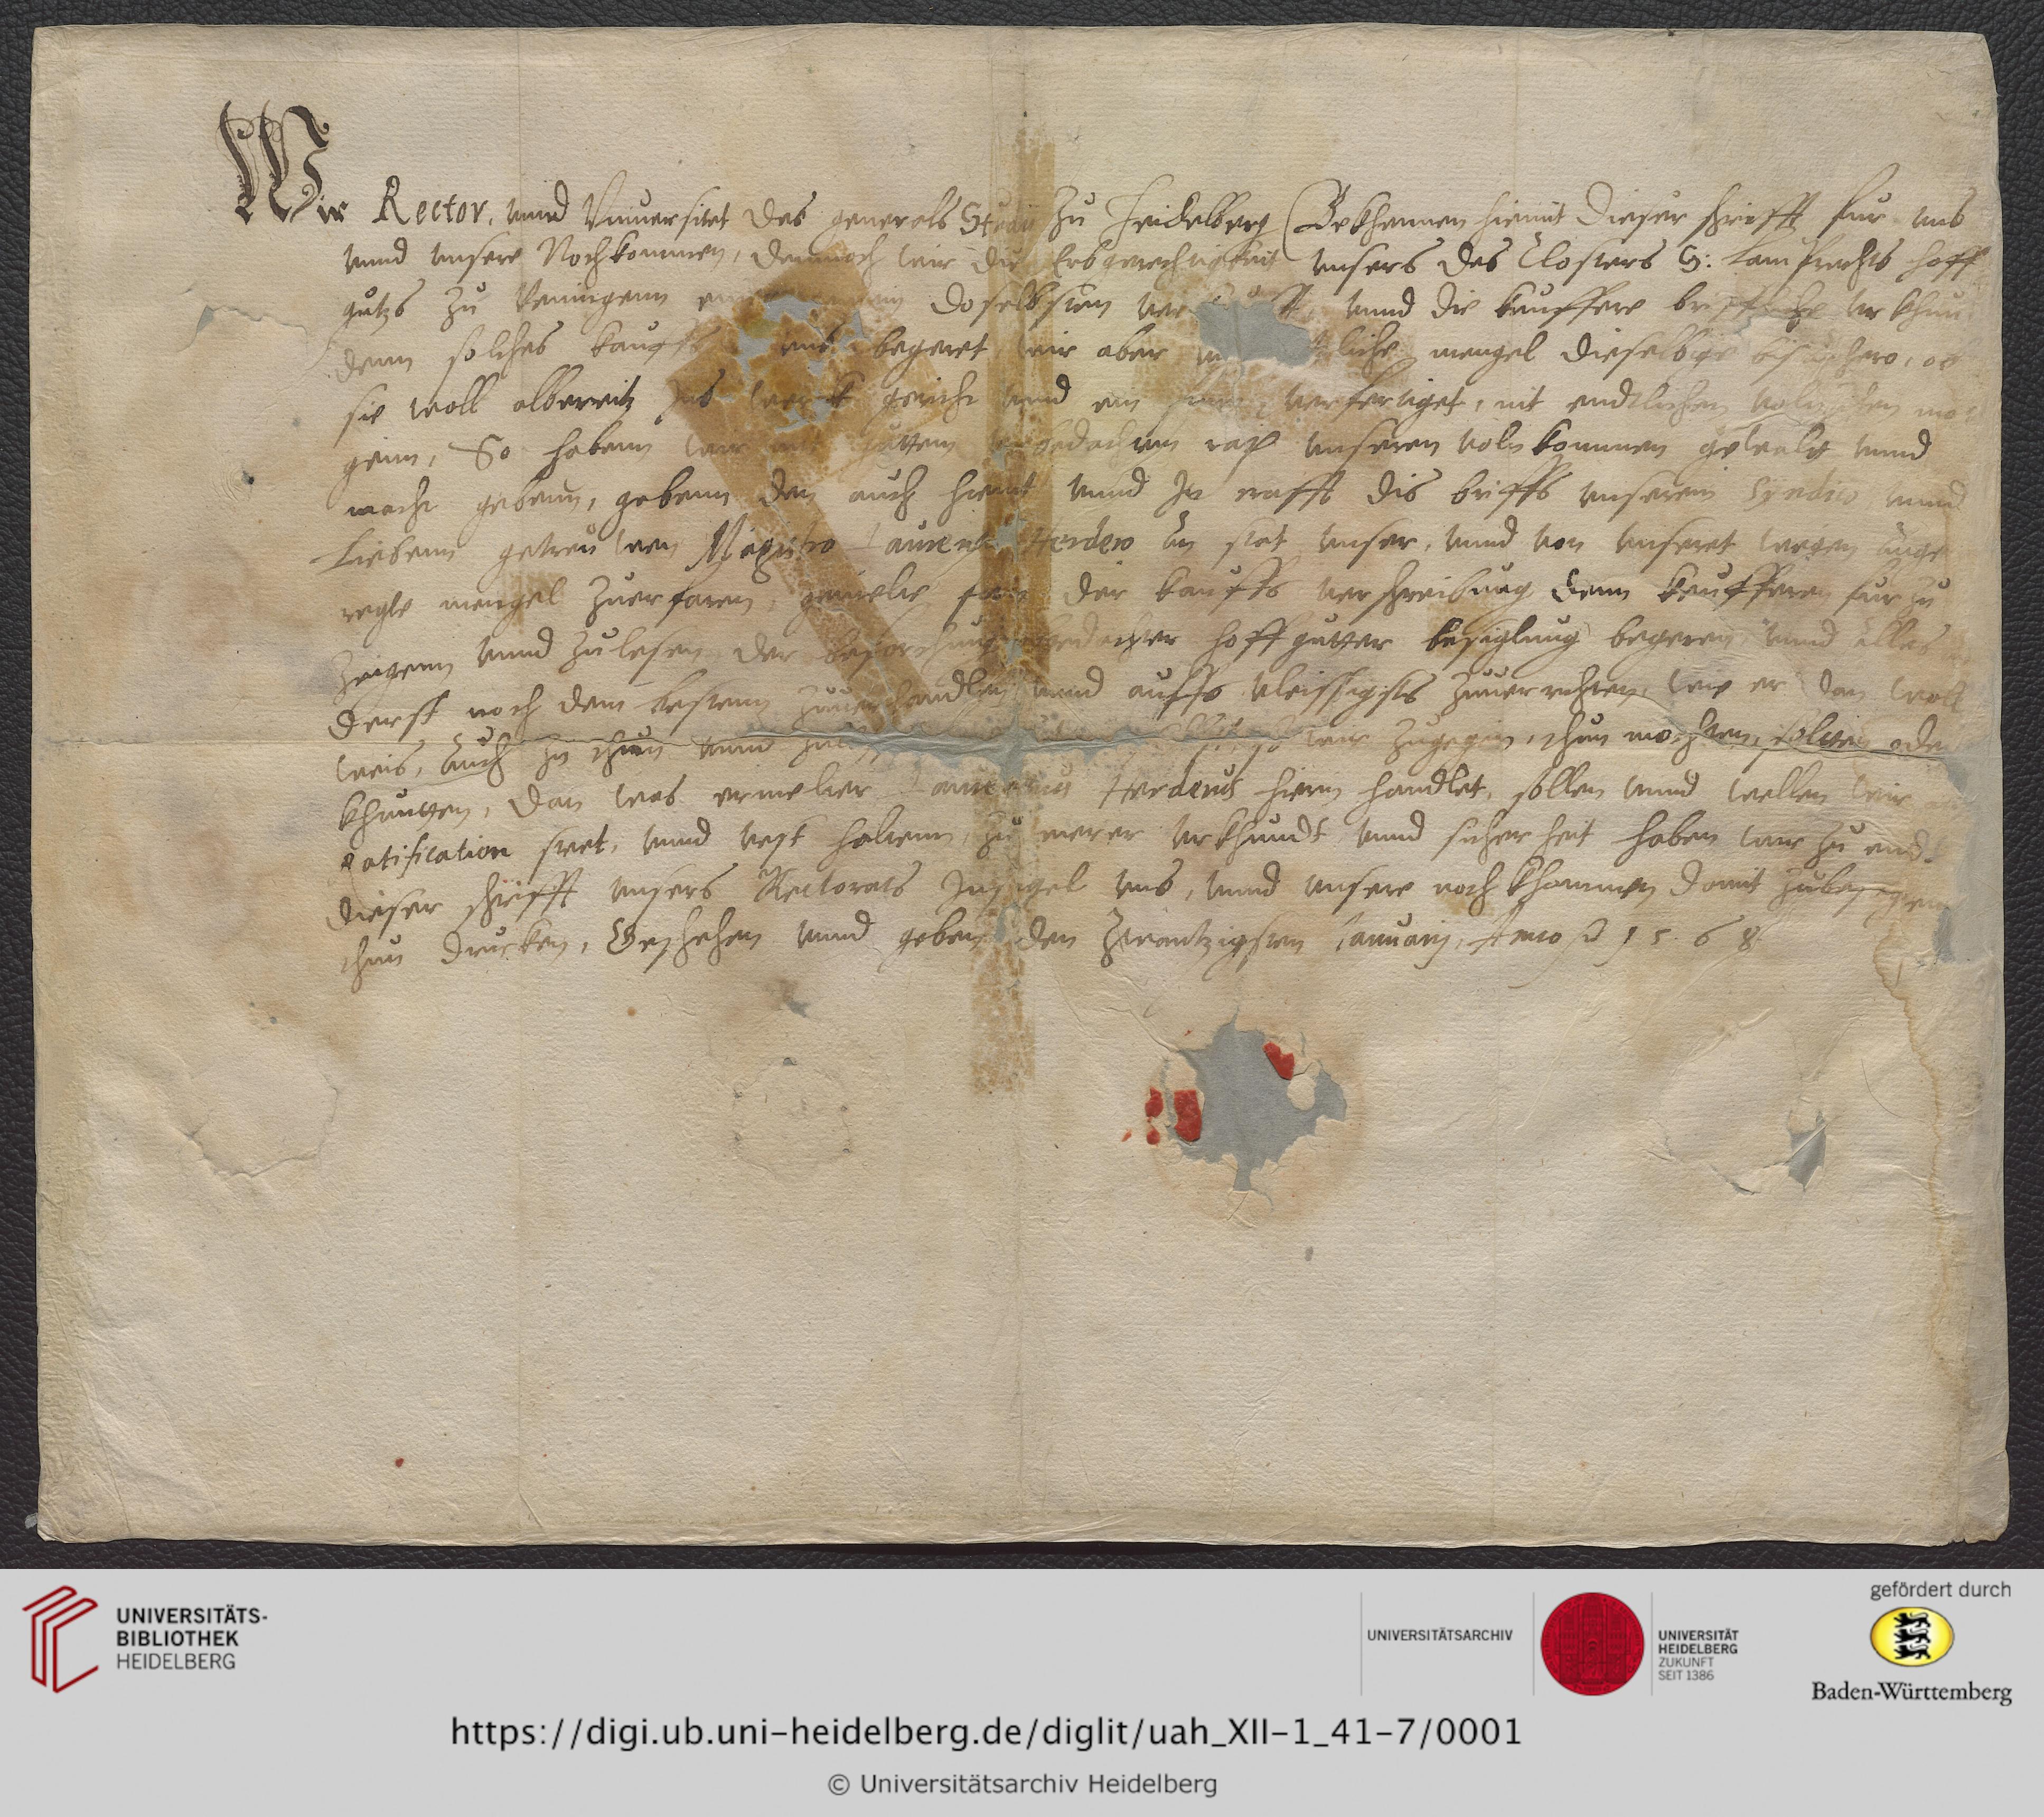 Wir Rector, unnd Vniuersitet des generals Studii zu Heidelberg Bekhennen hiemit dieser schriefft fur uns
unnd unsere Nochkommen, demnoch wir die Erbgerechtigkeit unsers des Closters S: Lamprechts hoff
gutzs zu Veningenn doselbsten unnd die keuffere briffliche urkhun
denn solches kauffs uns begeret wir aber mengel dieselbige bishero, ob
sie woll albereitz Ins werck gericht unnd ein verfertiget, nit endtlichen
genn, So habenn wir mit guttem unseren volnkommen gewalt unnd
macht gebenn, gebenn den auch hiemit unnd In crafft dis briffs unserem Syndico unnd
Liebenn getreuwen Magistro Laurentio Herdero an stat unser, unnd von unseret wegen ange
regte mengel zuerfaren, der kauffs verschreibung denn keufferen fur zu
zeigenn unnd zulesen der hoffgutter besiglung begeren, unnd alles
derst noch dem bestenn zuuerhandlen unnd auffs vleissigsts zuuerrichten, wie er dan woll
weis, Auch zu thun unnd wir zugegen, thun mochten, solten oder
khuntten, Dan was ermelter Laurentius Herderus hierin handlet, sollen unnd wellen wir
ratification stet, unnd vest haltenn, zu merer urkhundt unnd sicherheit haben wir zu end
dieser schriefft unsers Rectorats Insigel uns, unnd unsere nochkhommen domit zubesagen
thun drucken, Geschehen unnd geben den Zwantzigsten Januarij, Anno 1568
UNIVERSITÄTS-
BIBLIOTHEK
HEIDELBERG
UNIVERSITÄTSARCHIV
UNIVERSITÄT
HEIDELBERG
ZUKUNFT
SEIT 1386
gefördert durch
Baden-Württemberg
https://digi.ub.uni-heidelberg.de/diglit/uah_XII-1_41-7/0001
© Universitätsarchiv Heidelberg